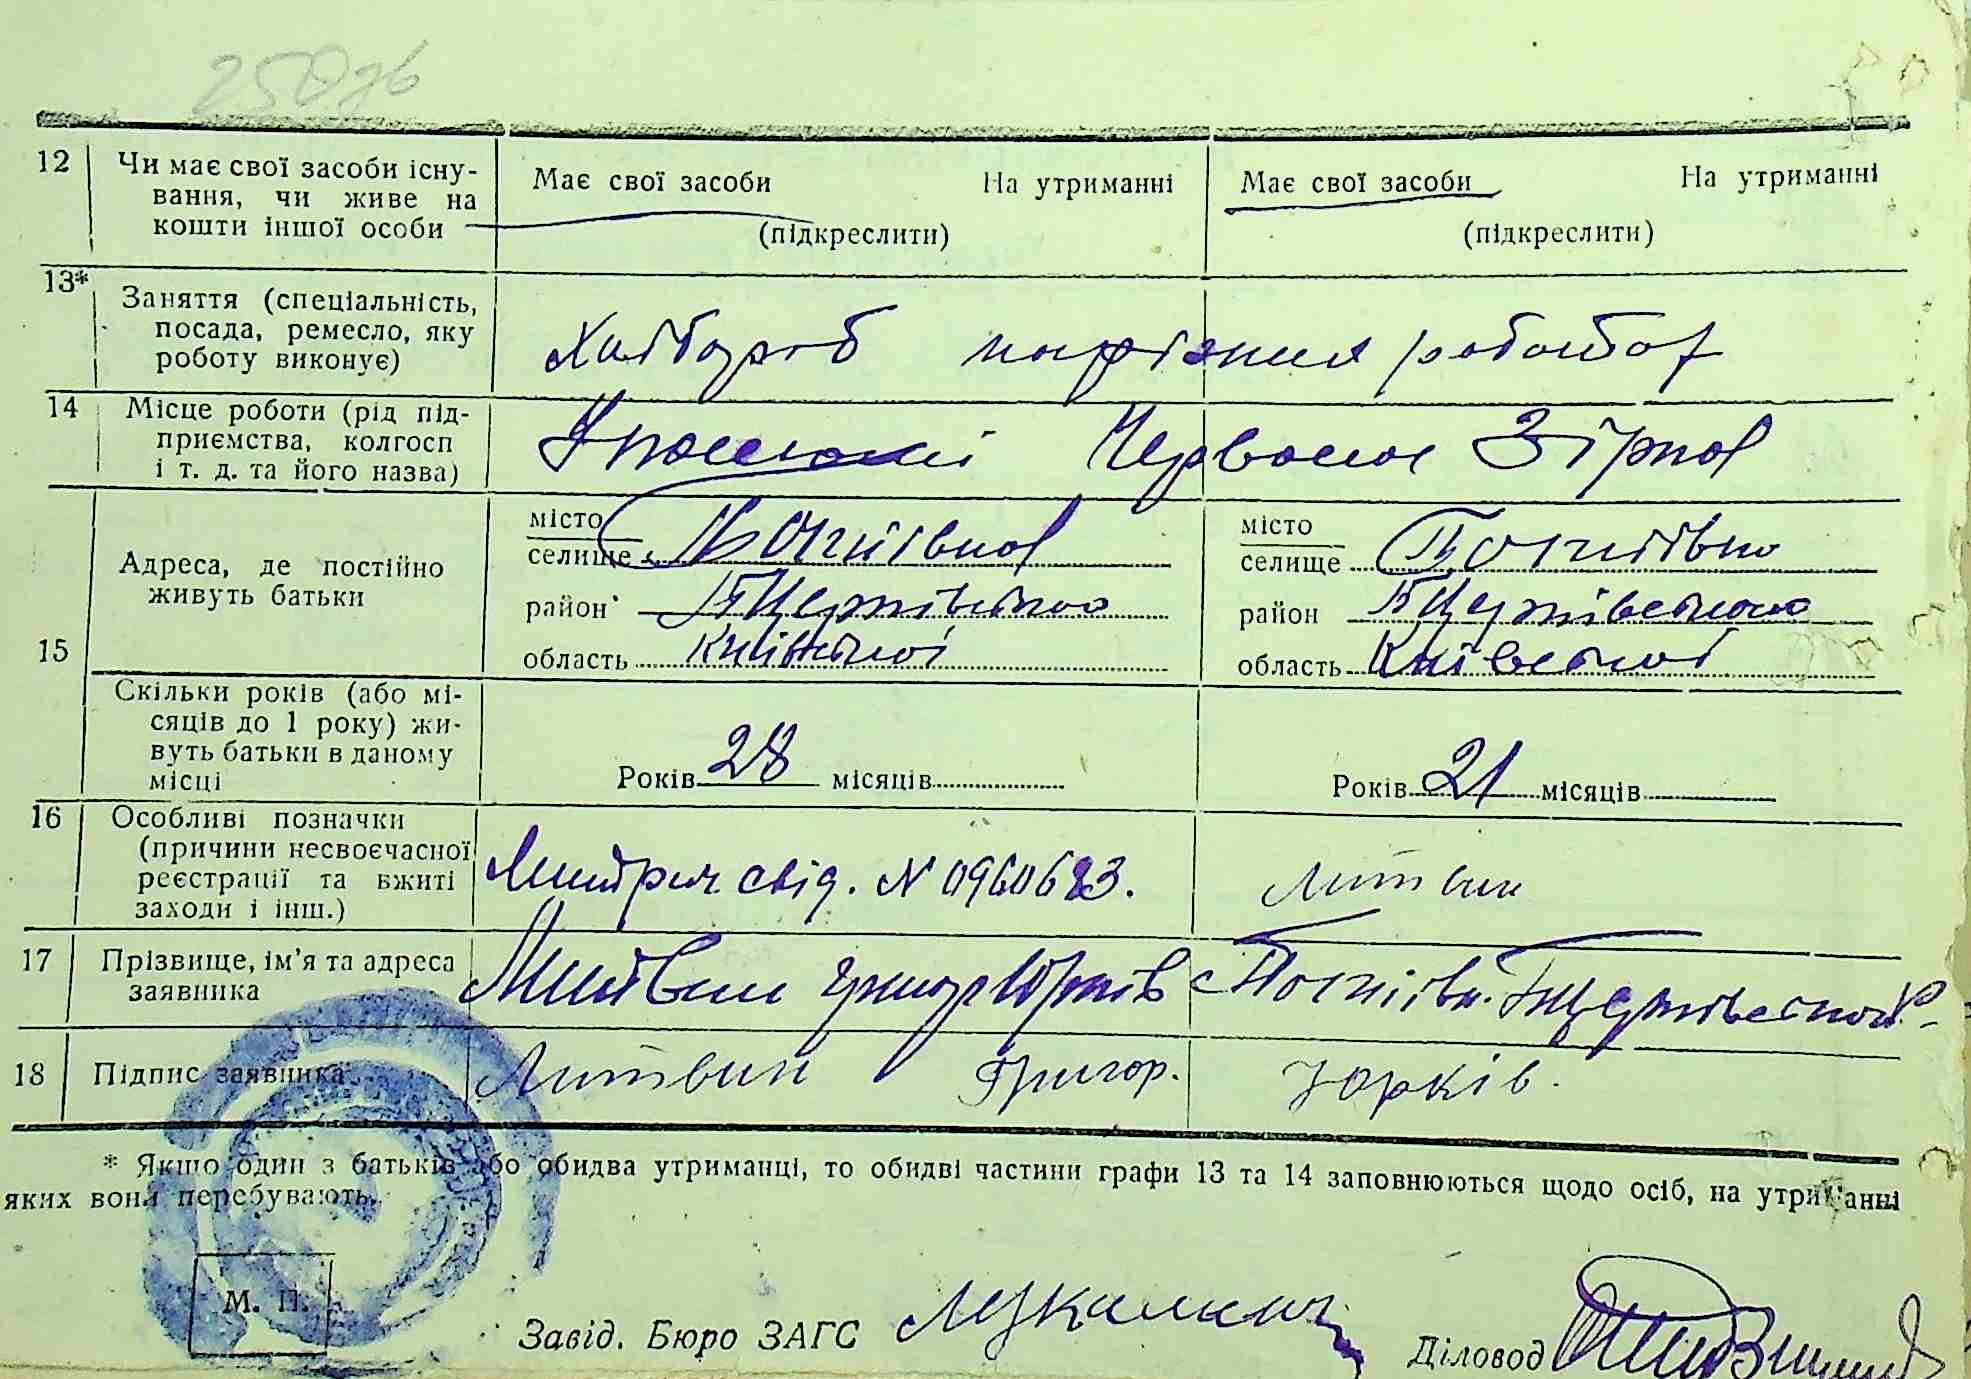 12 Чи має свої засоби існу-
вання, чи живе на
кошти іншої особи
Має свої засоби На утриманні
(підкреслити)
Має свої засоби На утриманні
(підкреслити)
13* Заняття (спеціальність,
посада, ремесло, яку
роботу виконує)
Хлібороб порізних роботах
14 Місце роботи (рід під-
приємства, колгосп
і т. д. та його назва)
Червона Зірка
15 Адреса, де постійно
живуть батьки
місто
селище
район Б Церківського
область Київської
місто
селище
район Б Церківського
область Київської
Скільки років (або мі-
сяців до 1 року) жи-
вуть батьки в даному
місці
Років 28 місяців
Років 21 місяців
16 Особливі позначки
(причини несвоєчасної
реєстрації та вжиті
заходи і інш.)
свід. N 0960683.
Литвин
17 Прізвище, ім'я та адреса
заявника
Литвин Григор Юрків
18 Підпис заявника
Литвин Григор. Юрків.
* Якщо один з батьків або обидва утриманці, то обидві частини графи 13 та 14 заповнюються щодо осіб, на утриманні
яких вони перебувають.
М. П.
Завід. Бюро ЗАГС
Діловод